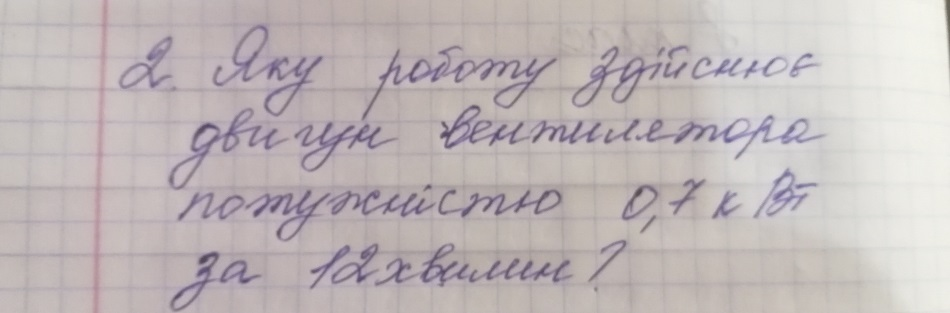 2. Яку роботу здійснює
двигун вентилятора
потужністю 0,7 кВт
за 12 хвилин?